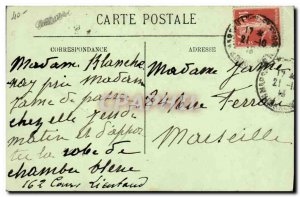 40-
CARTE POSTALE
CORRESPONDANCE
ADRESSE
17
21-10
Madame Blanche
ray prie Madame
Jame de passer
chez elle jeudi
matin et d'appor
ter la robe de
chambre bleue
16² Cours Lieutaud
Madame Jame
34 rue Ferrari
Marseille